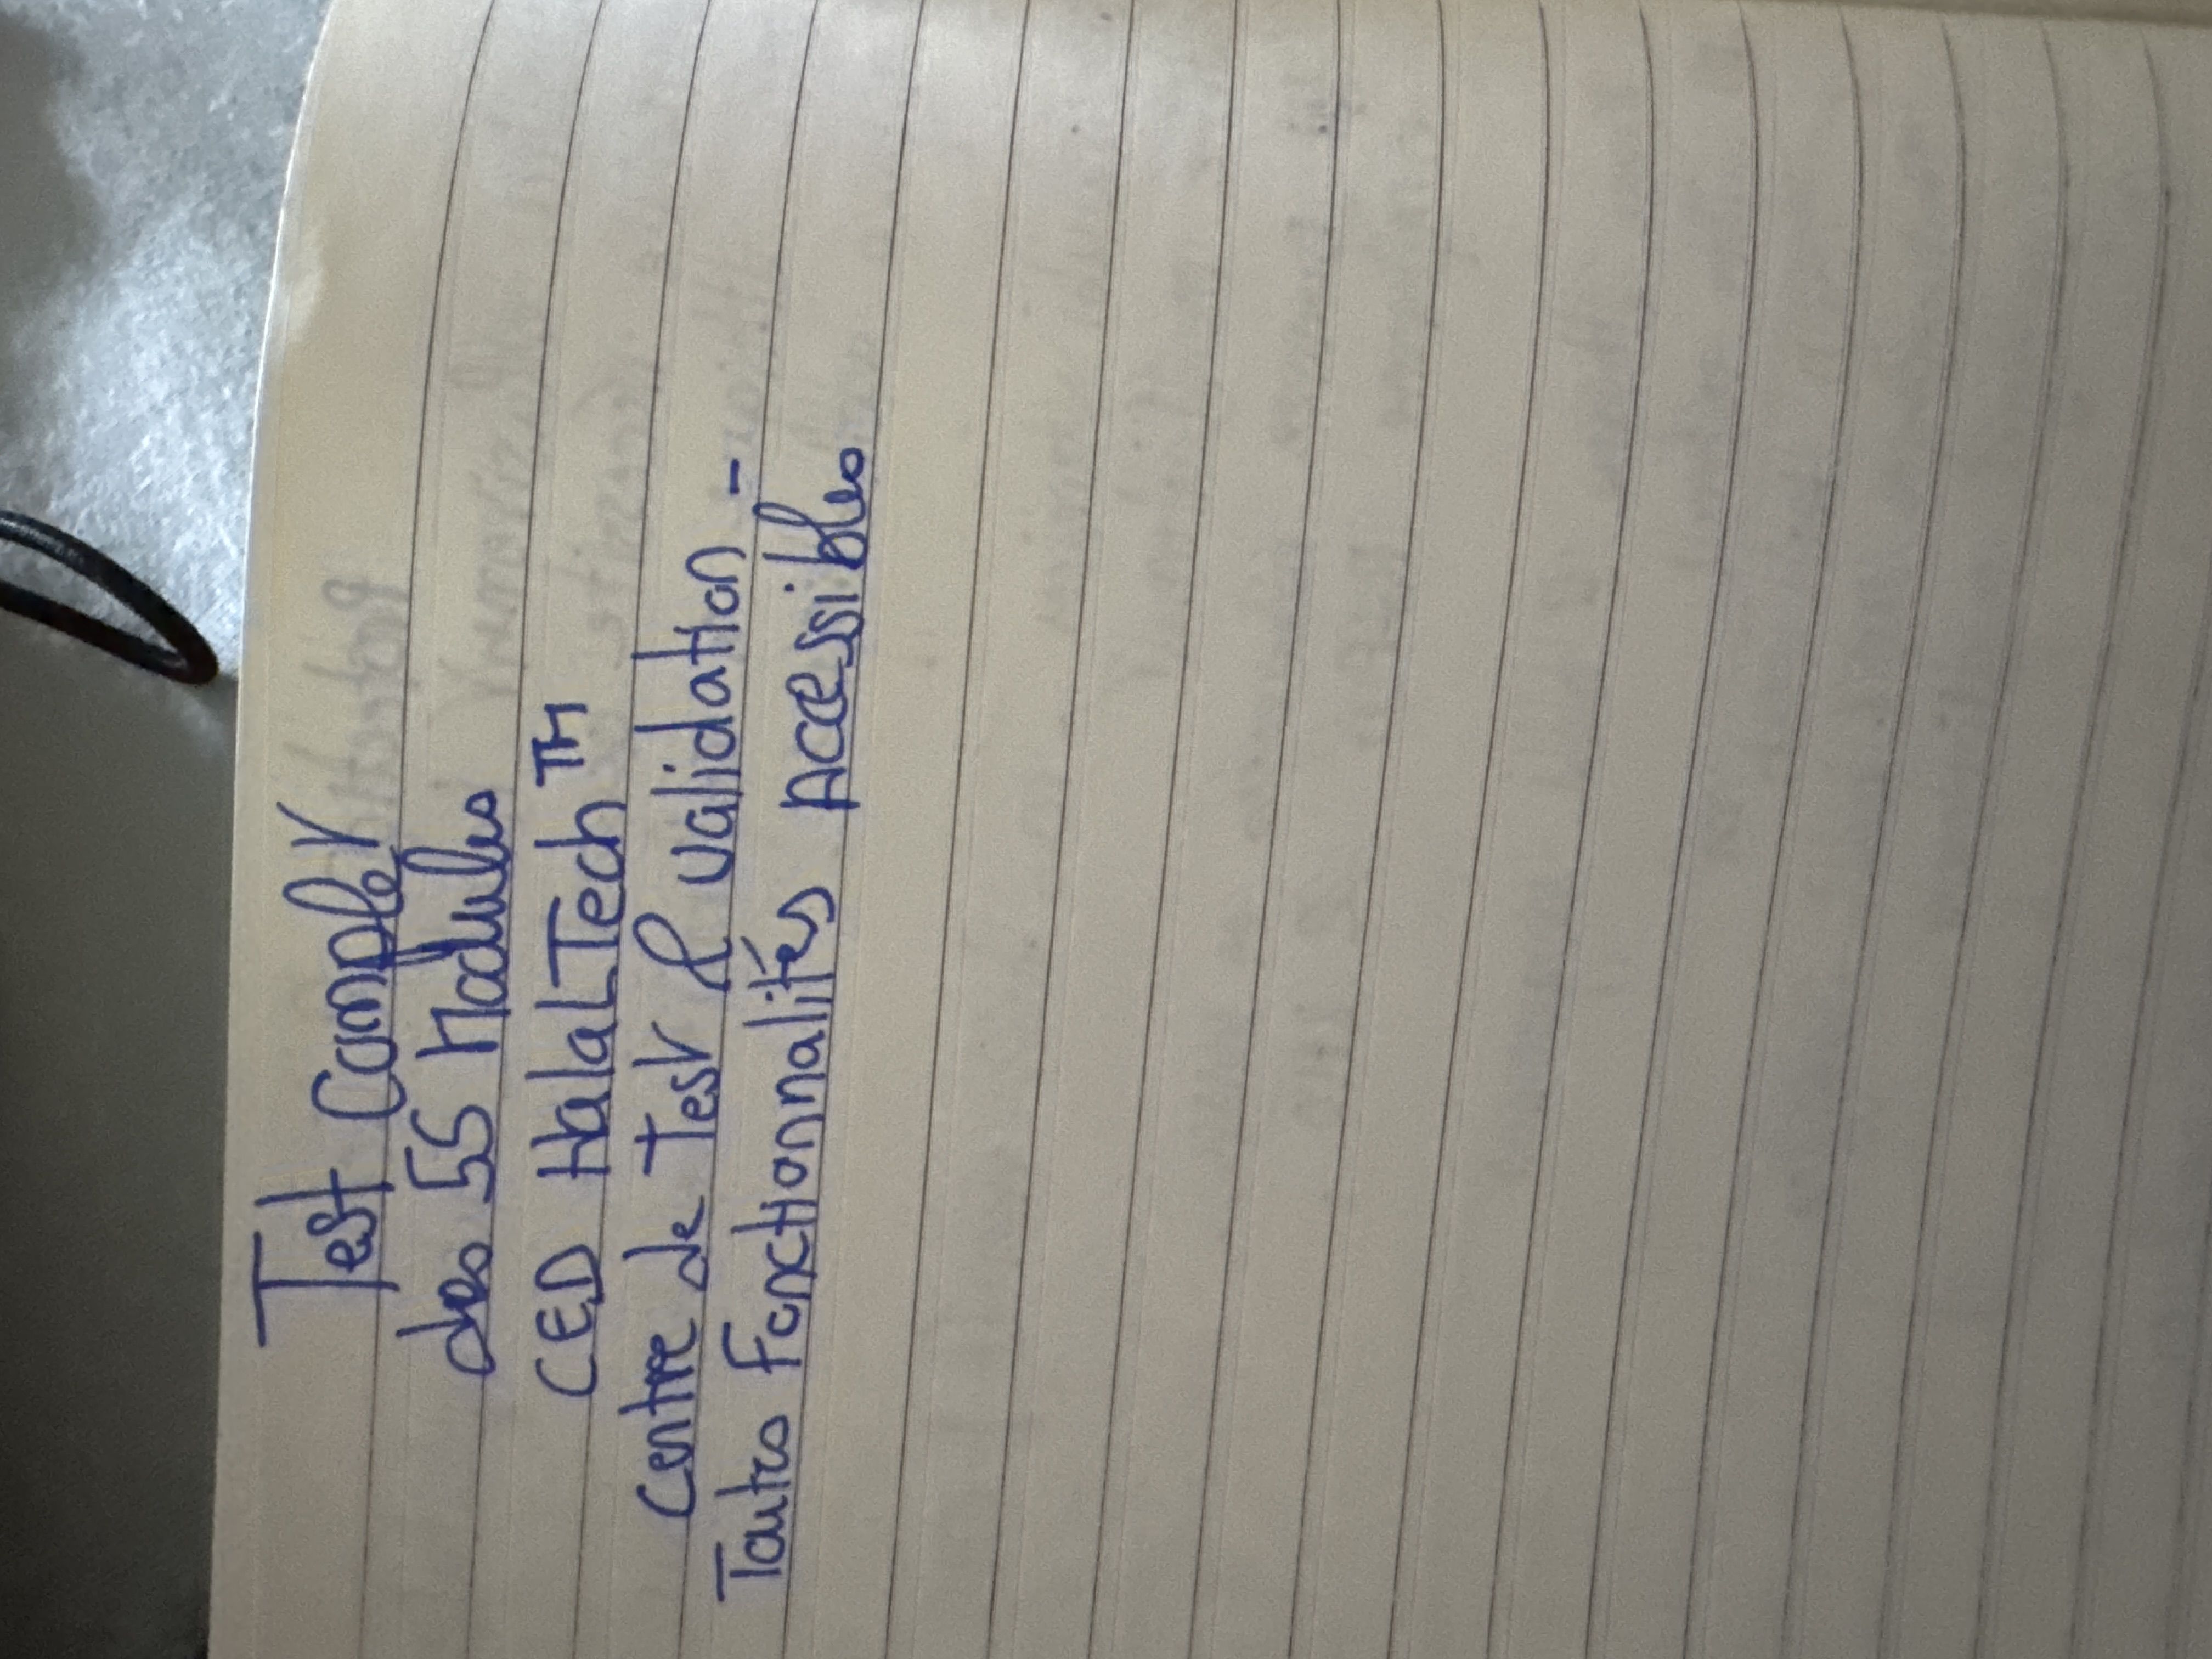 Test Complet
des 55 Modules
CED HalalTech™
Centre de Test & validation -
Toutes Fonctionnalités Accessibles